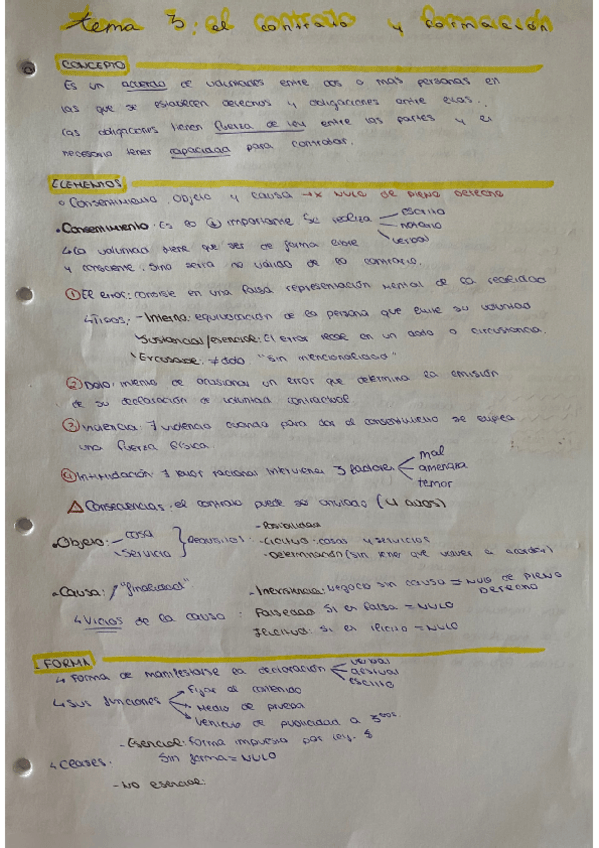 tema 3: el contrato y formación
CONCEPTO
Es un acuerdo de voluntades entre dos o mas personas en
las que se establecen derechos y obligaciones entre ellas.
Las obligaciones tienen fuerza de ley entre las partes y es
necesario tener capacidad para contratar.
ELEMENTOS
Consentimiento, objeto y causa → x NULO DE PLENO DERECHO
• Consentimiento. Es lo importante Se realiza escrito
notario
verbal
↳ La voluntad tiene que ser de forma libre
y consciente. Sino sería no válido de lo contrario.
① El error: consiste en una falsa representación mental de la realidad
↳ Tipos: - Interno: equivocación de la persona que emite su voluntad
Sustancial/esencial: El error recae en un dato o circustancia.
Excusable: ≠ dolo "sin intencionalidad"
② Dolo: intento de ocasionar un error que determina la emisión
de su declaración de voluntad contractual
③ Violencia: ∃ violencia cuando para dar el consentimiento se emplea
una fuerza física.
④ Intimidación ∃ temor racional intervienen 3 factores mal
amenaza
temor
△ Consecuencias: el contrato puede ser anulado (4 años)
• Objeto: - cosa
Servicio
Requisitos: - Posibilidad
- Lícitud: cosas y servicios
- Determinación (sin tener que volver a acordar)
• Causa: "finalidad"
↳ Vicios de la causa:
- Inexistencia: negocio sin causa = NULO DE PLENO
DERECHO
Falsedad Si es falsa = NULO
Ilicitud: Si es ilícito = NULO
FORMA
↳ Forma de manifestarse la declaración verbal
gestual
escrito
↳ Sus funciones Fijar el contenido
Medio de prueba
Vehículo de publicidad a 3ᵒˢ
↳ Clases: - Esencial: forma impuesta por ley.
Sin forma = NULO
- No esencial: